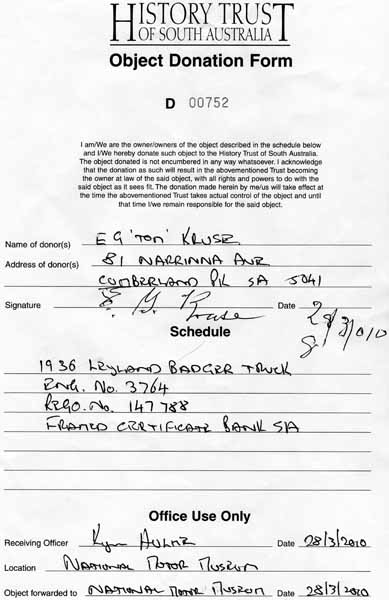 HISTORY TRUST
OF SOUTH AUSTRALIA
Object Donation Form
D 00752
I am/We are the owner/owners of the object described in the schedule below
and I/We hereby donate such object to the History Trust of South Australia.
The object donated is not encumbered in any way whatsoever. I acknowledge
that the donation as such will result in the abovementioned Trust becoming
the owner at law of the said object, with all rights and powers to do with the
said object as it sees fit. The donation made herein by me/us will take effect at
the time the abovementioned Trust takes actual control of the object and until
that time I/we remain responsible for the said object.
Name of donor(s) E G 'TOM' KRUSE
Address of donor(s) 81 NARRINNA AVE
CUMBERLAND PK SA 5041
Signature E. G. Kruse Date 28/3/010
Schedule
1936 LEYLAND BADGER TRUCK
ENG. No. 3764
REGO. No. 147788
FRAMED CERTIFICATE BANK SA
Office Use Only
Receiving Officer HULME Date 28/3/2010
Location NATIONAL MOTOR MUSEUM
Object forwarded to NATIONAL MOTOR MUSEUM Date 28/3/2010